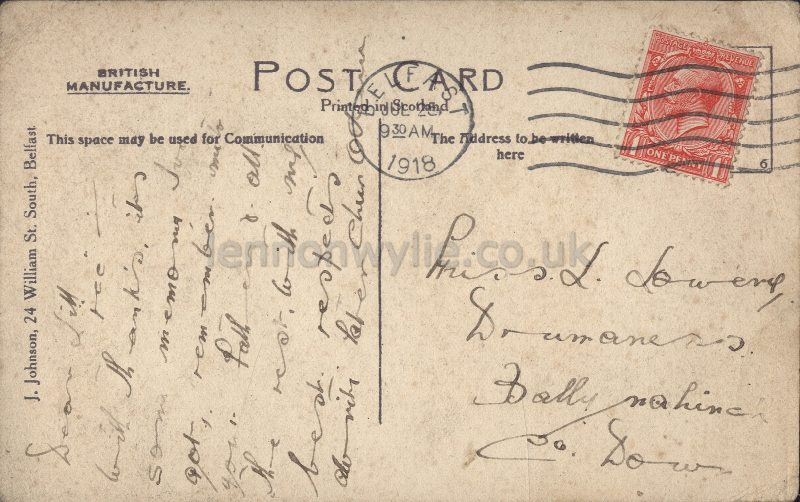 BRITISH
MANUFACTURE.
POST CARD
Printed in Scotland
This space may be used for Communication
The Address to be written
here
BELFAST
JUL 26
9 30 AM
1918
POSTAGE REVENUE
ONE PENNY
6
J. Johnson, 24 William St. South, Belfast
Dear
rec
with thanks, its
some memory
got, remember me
you. Father & all
the rest, with my
best respects
Miss. L. Lowery,
Drumaness.
Ballynahinch
Co. Down
lennonwylie.co.uk